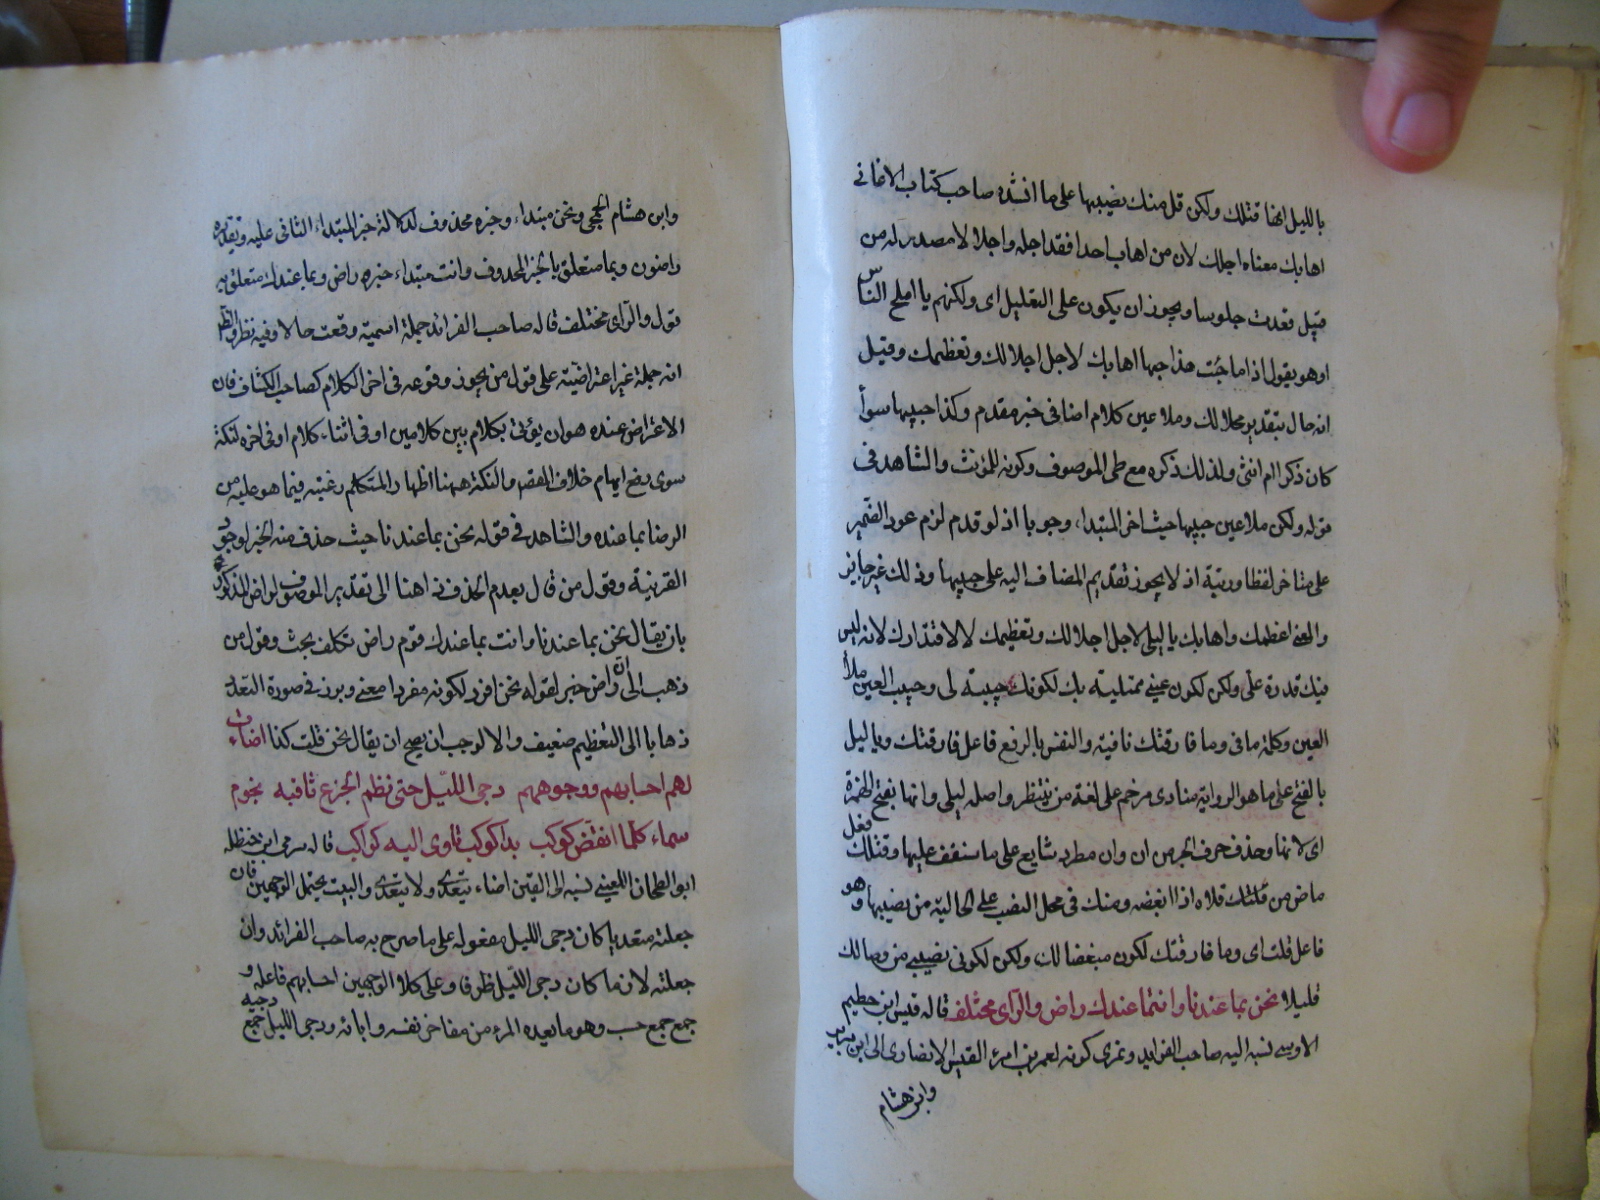 بالليل انها قتلك ولكن قل منك نصيبها على ما انشده صاحب كتاب الاغانى
اهابك معناه اجلك لان من اهاب احدا فقد اجله واجلالا مصدر له من
قبيل قعدت جلوسا ويجوز ان يكون على التعليل اى ولكنهم يا املح الناس
او هو يقول اذا ما جئت هذا حبها اهابك لاجل اجلالك وتعظيمك وقيل
انه حال بتقدير مجلالك وملا عين كلام اضافى خبر مقدم وكذا حبيبها سوأ
كان ذكرا ام انثى ولذلك ذكره مع طى الموصوف وكونه للمؤنث والشاهد فى
قوله ولكن ملا عين حبيبها حيث اخر المبتداء وجوبا اذ لو قدم لزم عود الضمير
على متاخر لفظا ورتبة اذ لا يجوز تقديم المضاف اليه على حبيبها وذلك غير جايز
والمعنى اعظمك واهابك يا ليلى لاجل اجلالك وتعظيمك لا لاقتدارك لانه ليس
منك قدرة على ولكن لكون عينى ممتلية بك لكونك حبيبة لى وحبيب العين ملأ
العين وكلمة ما فى وما فارقتك نافية والنفس بالرفع فاعل فارقتك ويا ليل
بالفتح على ما هو الرواية منادى مرخم على لغة من ينتظر واصله ليلى وانها بفتح الهمزة
اى لانها وحذف حرف الجر من ان وان مطرد شايع على ما ستقف عليها وقتلك فعل
ماض من قلتك قلاه اذا ابغضه ومنك فى محل النصب على الحالية من نصيبها وهو
فاعل قلت اى وما فارقتك لكون مبغضا لك ولكن لكونى نصيبى من وصالك
قليلا نحن بما عندنا وانت بما عندك راض والرأى مختلف قاله قيس ابن حطيم
الاوسى نسبه اليه صاحب الفرايد وعزى كونه لعمر بن امرئ القيس الانصارى الى ابن برير
وابن هشام
وابن هشام الجمحى ونحن مبتداء وخبره محذوف لدلالة خبر المبتداء الثانى عليه وتقديره
راضون وبما متعلق بالخبر المحذوف وانت مبتداء خبره راض وبما عندك متعلق به
قول والرأى مختلف قاله صاحب الفرائد جملة اسمية وقعت حالا وفيه نظر والظم
انه جملة غير اعتراضية على قول من يجوز وقوعه فى اخر الكلام كصاحب الكشاف فان
الاعتراض عنده هو ان يؤتى بكلام بين كلامين او فى اثناء كلام او فى اخره لنكتة
سوى دفع ايهام خلاف المقصم والنكتة ههنا اظهار المتكلم رغبته فيما هو عليه من
الرضا بما عنده والشاهد فى قوله نحن بما عندنا حيث حذف منه الخبر لوجود
القرينة وقول من قال بعدم الحذف ذاهبا الى تقدير الموصوف لراض المذكور
بان يقال نحن بما عندنا وانت بما عندك قوم راض تكلف بحث وقول من
ذهب الى ان راض خبر لقوله نحن افرد لكونه مفردا معنى وبرز فى صورة التعدد
ذهابا الى التعظيم ضعيف والا لوجب ان يصح ان يقال نحن قلت كذا اضاءت
لهم احسابهم ووجوههم دجى الليل حتى نظم الجزع ثاقبه نجوم
سماء كلما انقض كوكب بدا كوكب تاوى اليه كواكب قاله سرمى ابن حنظله
ابو الطحان اللعينى نسبه الى القين اضاء يتعدى ولا يتعدى والبيت يحتمل الوجهين فان
جعلته متعديا كان دجى الليل مفعوله على ما صرح به صاحب الفرائد وان
جعلته لازما كان دجى الليل ظرفا وعلى كلا الوجهين احسابهم فاعله و
جمع جمع حسب وهو ما يعده المرء من مفاخر نفسه وابائه ودجى الليل جمع دجية